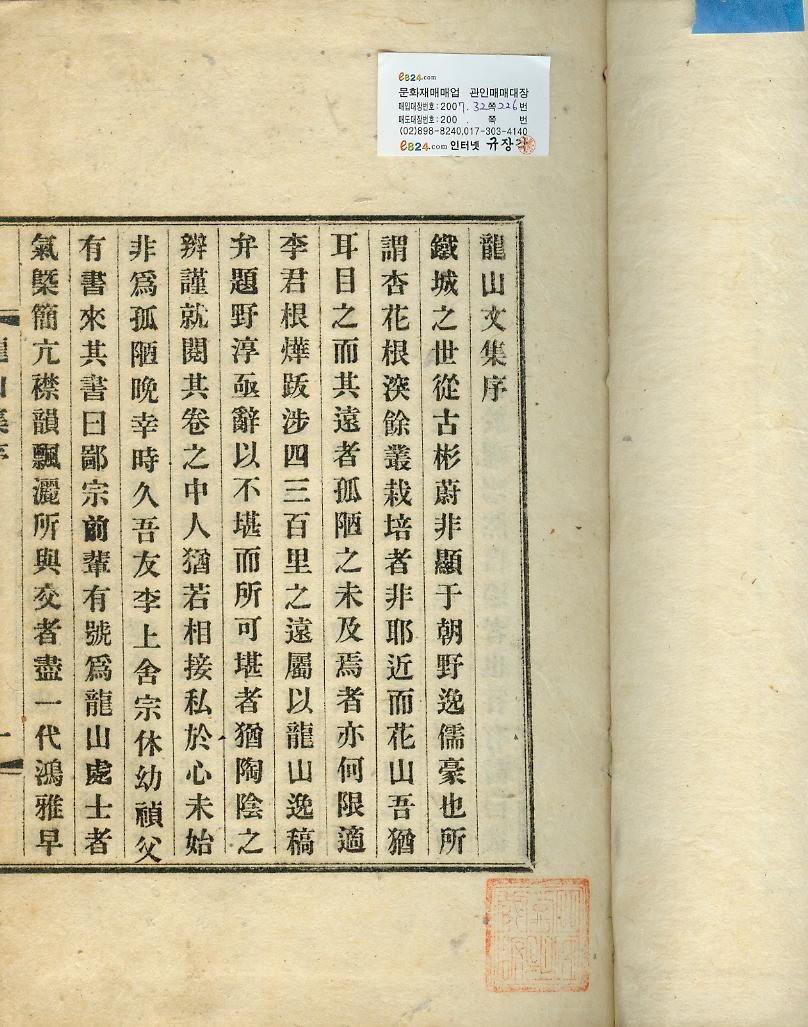 e824.com
문화재매매업 관인매매대장
매입대장번호:2007.32쪽226번
매도대장번호:200 . 쪽 번
(02)898-8240,017-303-4140
e824.com 인터넷 규장각
龍山文集序
鐵城之世從古彬蔚非顯于朝野逸儒豪也所
謂杏花根深餘叢栽培者非耶近而花山吾猶
耳目之而其遠者孤陋之未及焉者亦何限適
李君根燁跋涉四三百里之遠屬以龍山逸稿
弁題野淳亟辭以不堪而所可堪者猶陶陰之
辨謹就閱其卷之中人猶若相接私於心未始
非爲孤陋晩幸時久吾友李上舍宗休幼禎父
有書來其書曰鄙宗前輩有號爲龍山處士者
氣槩簡亢襟韻飄灑所與交者盡一代鴻雅早